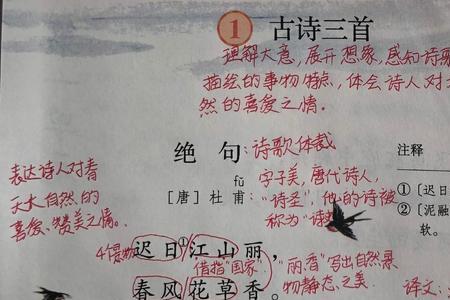 1 古诗三首
理解大意,展开想象,感知诗歌
描绘的事物特点,体会诗人对
然的喜爱之情。
绝句:诗歌体裁
注释
表达诗人对春
天大自然的
喜爱、赞美之情。
fǔ
[唐]杜甫:字子美,唐代诗人,
“诗圣”,他的诗被
称为“诗
① [迟日
② [泥融
软。
4个景物
迟日①江山丽,
借指“国家”
“丽、香”写出自然景
物静态之美
春风花草香。
译文: